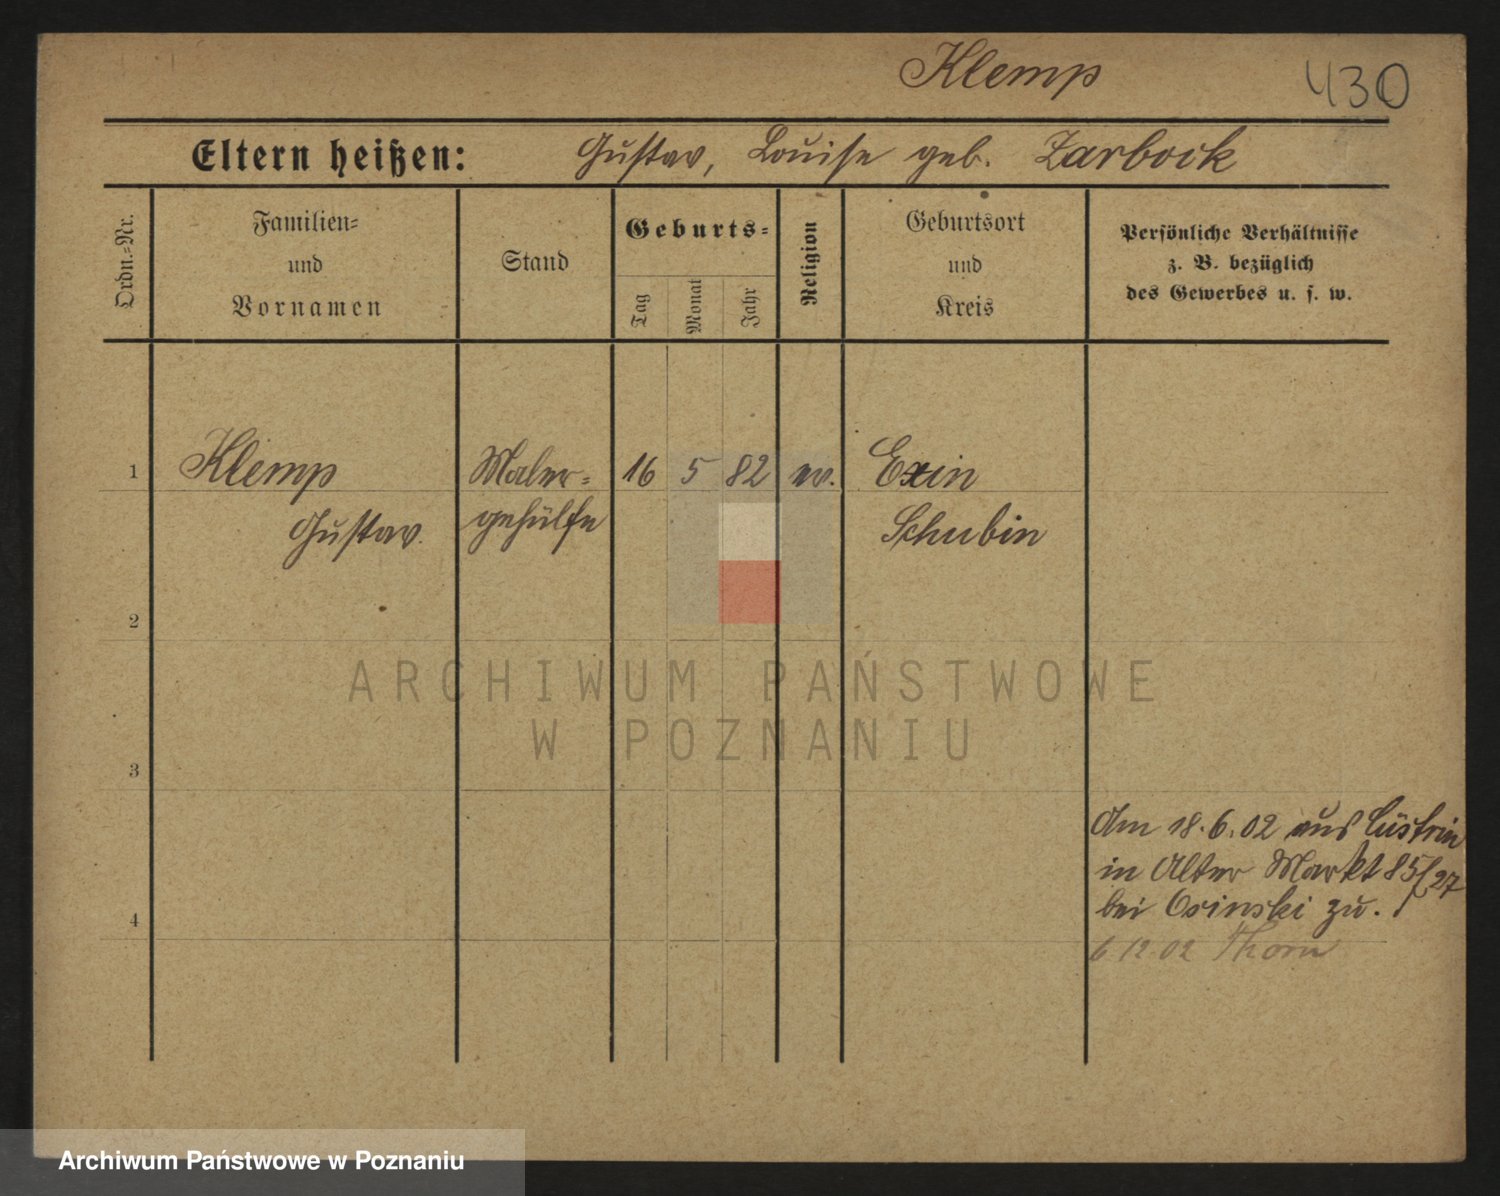 Klemp
430
Eltern heißen: Gustav, Louise geb. Zarbock
Ordn.-Nr.
Familien-
und
Vornamen
Stand
Geburts-
Tag
Monat
Jahr
Religion
Geburtsort
und
Kreis
Persönliche Verhältnisse
z. B. bezüglich
des Gewerbes u. s. w.
1 Klemp Maler- 16 5 82 ev. Exin
Gustav. gehülfe Schubin
2
ARCHIWUM PAŃSTWOWE
W POZNANIU
3
Am 18.6.02 aus Cüstrin
in Alter Markt 85/27
4 bei Osinski zu.
6 12 02 Thorn
Archiwum Państwowe w Poznaniu